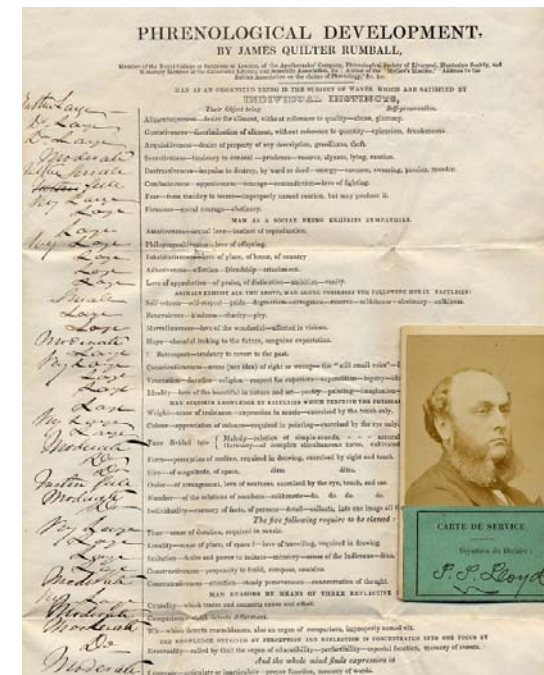 PHRENOLOGICAL DEVELOPMENT,
BY JAMES QUILTER RUMBALL,
Member of the Royal College of Surgeons of London, of the Apothecaries' Company, Phrenological Society of Liverpool,
MAN AS AN ORGANIZED BEING IS THE SUBJECT OF WANTS, WHICH ARE SATISFIED BY
INDIVIDUAL INSTINCTS,
Their Object being Self-preservation.
Large Alimentiveness—desire for aliment, without reference to quality—abuse, gluttony.
Do Large Gustativeness—discrimination of aliment, without reference to quantity—epicurism, drunkenness.
Do Large Acquisitiveness—desire of property of any description, greediness, theft.
Moderate Secretiveness—tendency to conceal—prudence—reserve, slyness, lying, evasion.
Destructiveness—impulse to destroy, by word or deed—energy—coarseness, swearing, passion, murder.
Full Combativeness—opposiveness—courage—contradiction—love of fighting.
Very Large Fear—from timidity to terror—improperly named caution, but may produce it.
Large Firmness—moral courage—obstinacy.
MAN AS A SOCIAL BEING EXHIBITS SYMPATHIES.
Large Amativeness—sexual love—instinct of reproduction.
Very Large Philoprogenitiveness—love of offspring.
Large Inhabitiveness—love of place, of home, of country
Large Adhesiveness—affection—friendship—attachment.
Large Love of approbation—of praise, of distinction—ambition—vanity.
ANIMALS EXHIBIT ALL THE ABOVE, MAN ALONE POSSESSES THE FOLLOWING MORAL FACULTIES:
Self-esteem—self-respect—pride—dogmatism—arrogance—reserve—selfishness—obstinacy—sulkiness.
Large Benevolence—kindness—charity—pity.
Large Marvellousness—love of the wonderful—affected in visions.
Moderate Hope—cheerful looking to the future, sanguine expectation.
Large Retrospect—tendency to revert to the past.
Very Large Conscientiousness—sense (not idea) of right or wrong—the "still small voice"
Large Veneration—devotion—religion—respect for superiors—superstition—bigotry
Large Ideality—love of the beautiful in nature and art—poetry—painting—imagination
MAN ACQUIRES KNOWLEDGE BY FACULTIES WHICH PERCEIVE THE
Large Weight—sense of resistance—expression in music—exercised by the touch only.
Very Large Colour—appreciation of colours—required in painting—exercised by the eye only.
Large Tune divided into Melody—relation of simple sounds, natural
Moderate Harmony—of complex simultaneous notes, cultivated
Do Form—perception of outline, required in drawing, exercised by sight and touch.
Do Size—of magnitude, of space. ditto ditto.
Full Order—of arrangement, love of neatness, exercised by the eye, touch, and use.
Moderate Number—of the relations of numbers—arithmetic—do. do. do. do.
Do Individuality—memory of facts, of persons—detail—collects, into one image all
The five following require to be
Very Large Time—sense of duration, required in music.
Large Locality—sense of place, of space—love of travelling, required in drawing.
Large Imitation—desire and power to imitate—mimicry—sense of the ludicrous
Large Constructiveness—propensity to build, compose, contrive.
Moderate attention—steady perseverance—concentration of thought.
MAN REASONS BY MEANS OF THREE REFLECTIVE
Large Causality—which traces and connects cause and effect.
Moderate Comparison—which detects differences.
Moderate Wit—which detects resemblances, also an organ of comparison, improperly named wit.
THE KNOWLEDGE OBTAINED BY PERCEPTION AND REFLECTION IS CONCENTRATED INTO ONE FOCUS BY
Do Eventuality—called by Gall the organ of educability—perfectibility—especial function, memory of events.
And the whole mind finds expression in
Moderate Language—articulate or inarticulate—proper function, memory of words.
CARTE DE SERVICE
Signature du titulaire:
Lloyd